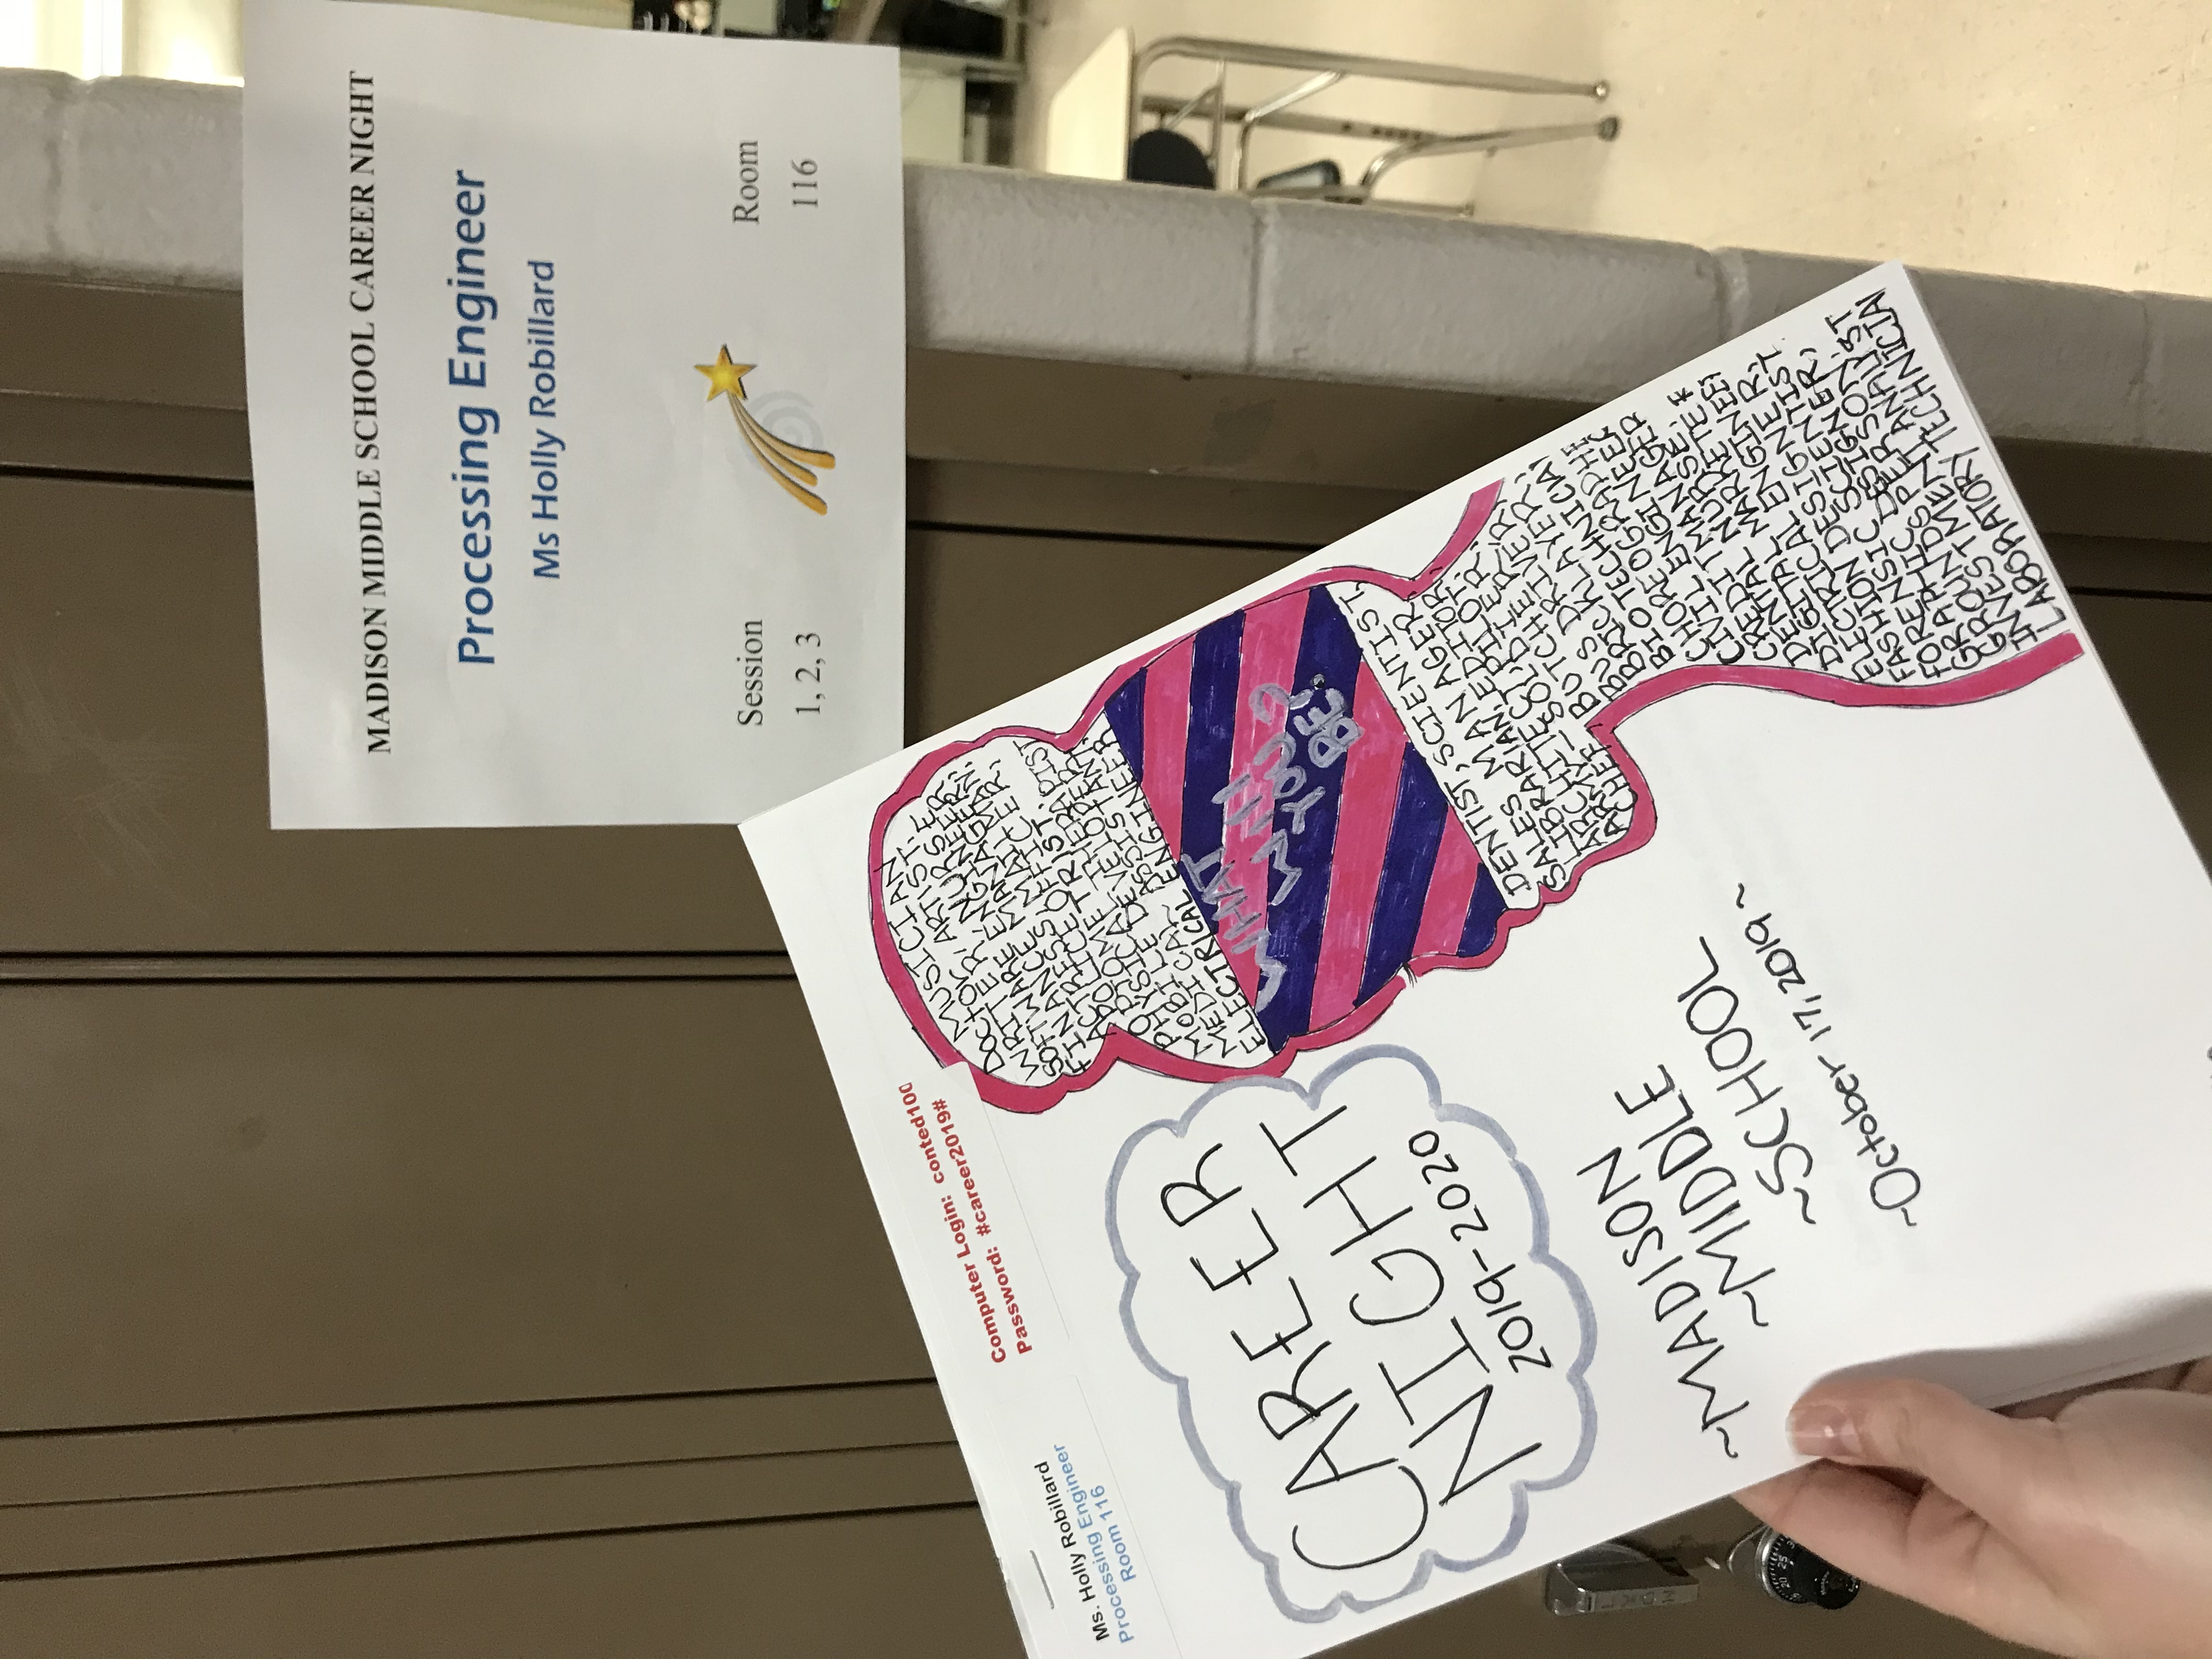 MADISON MIDDLE SCHOOL CAREER NIGHT
Processing Engineer
Ms Holly Robillard
Session
1, 2, 3
Room
116
Computer Login: conted100
Password: #career2019#
Ms. Holly Robillard
Processing Engineer
Room 116
CAREER
NIGHT
2019-2020
~MADISON
~MIDDLE
~SCHOOL
~October 17, 2019~
MUSICIAN
DOCTOR, ARTIST,
WRITER, NURSE
SOFTWARE ENGINEER
FINANCE MANAGER
ACTRESS, MAILMAN,
POLICE OFFICER,
OPTIOMETRIST,
PHYSICAL THERAPIST
MOBILE DEVELOPER
MEDICAL ASSISTANT,
ELECTRICAL ENGINEER
WHAT
WIll
YOU
BE?
DENTIST, SCIENTIST,
SALES MANAGER
LIBRARIAN, EDITOR,
ARCHITECT, PILOT,
ARMY-SOLDIER,
CHEF, BUTCHER,
BUS DRIVER,
BRICKLAYER,
BIOTECHNICIA
CHOREOGRAPHE
CIVIL ENGINEER
CREDIT MANAGER
DENTAL NURSE,
DIGITAL MARKETE
ELECTRICAL ENGINEER
FASHION DESIGNER,
FORENSIC SCIENTIST
GRAPHIC DESIGNER,
GROUNDSPERSON,
INVESTMENT ANALYST
LABORATORY TECHNICIAN
20 25